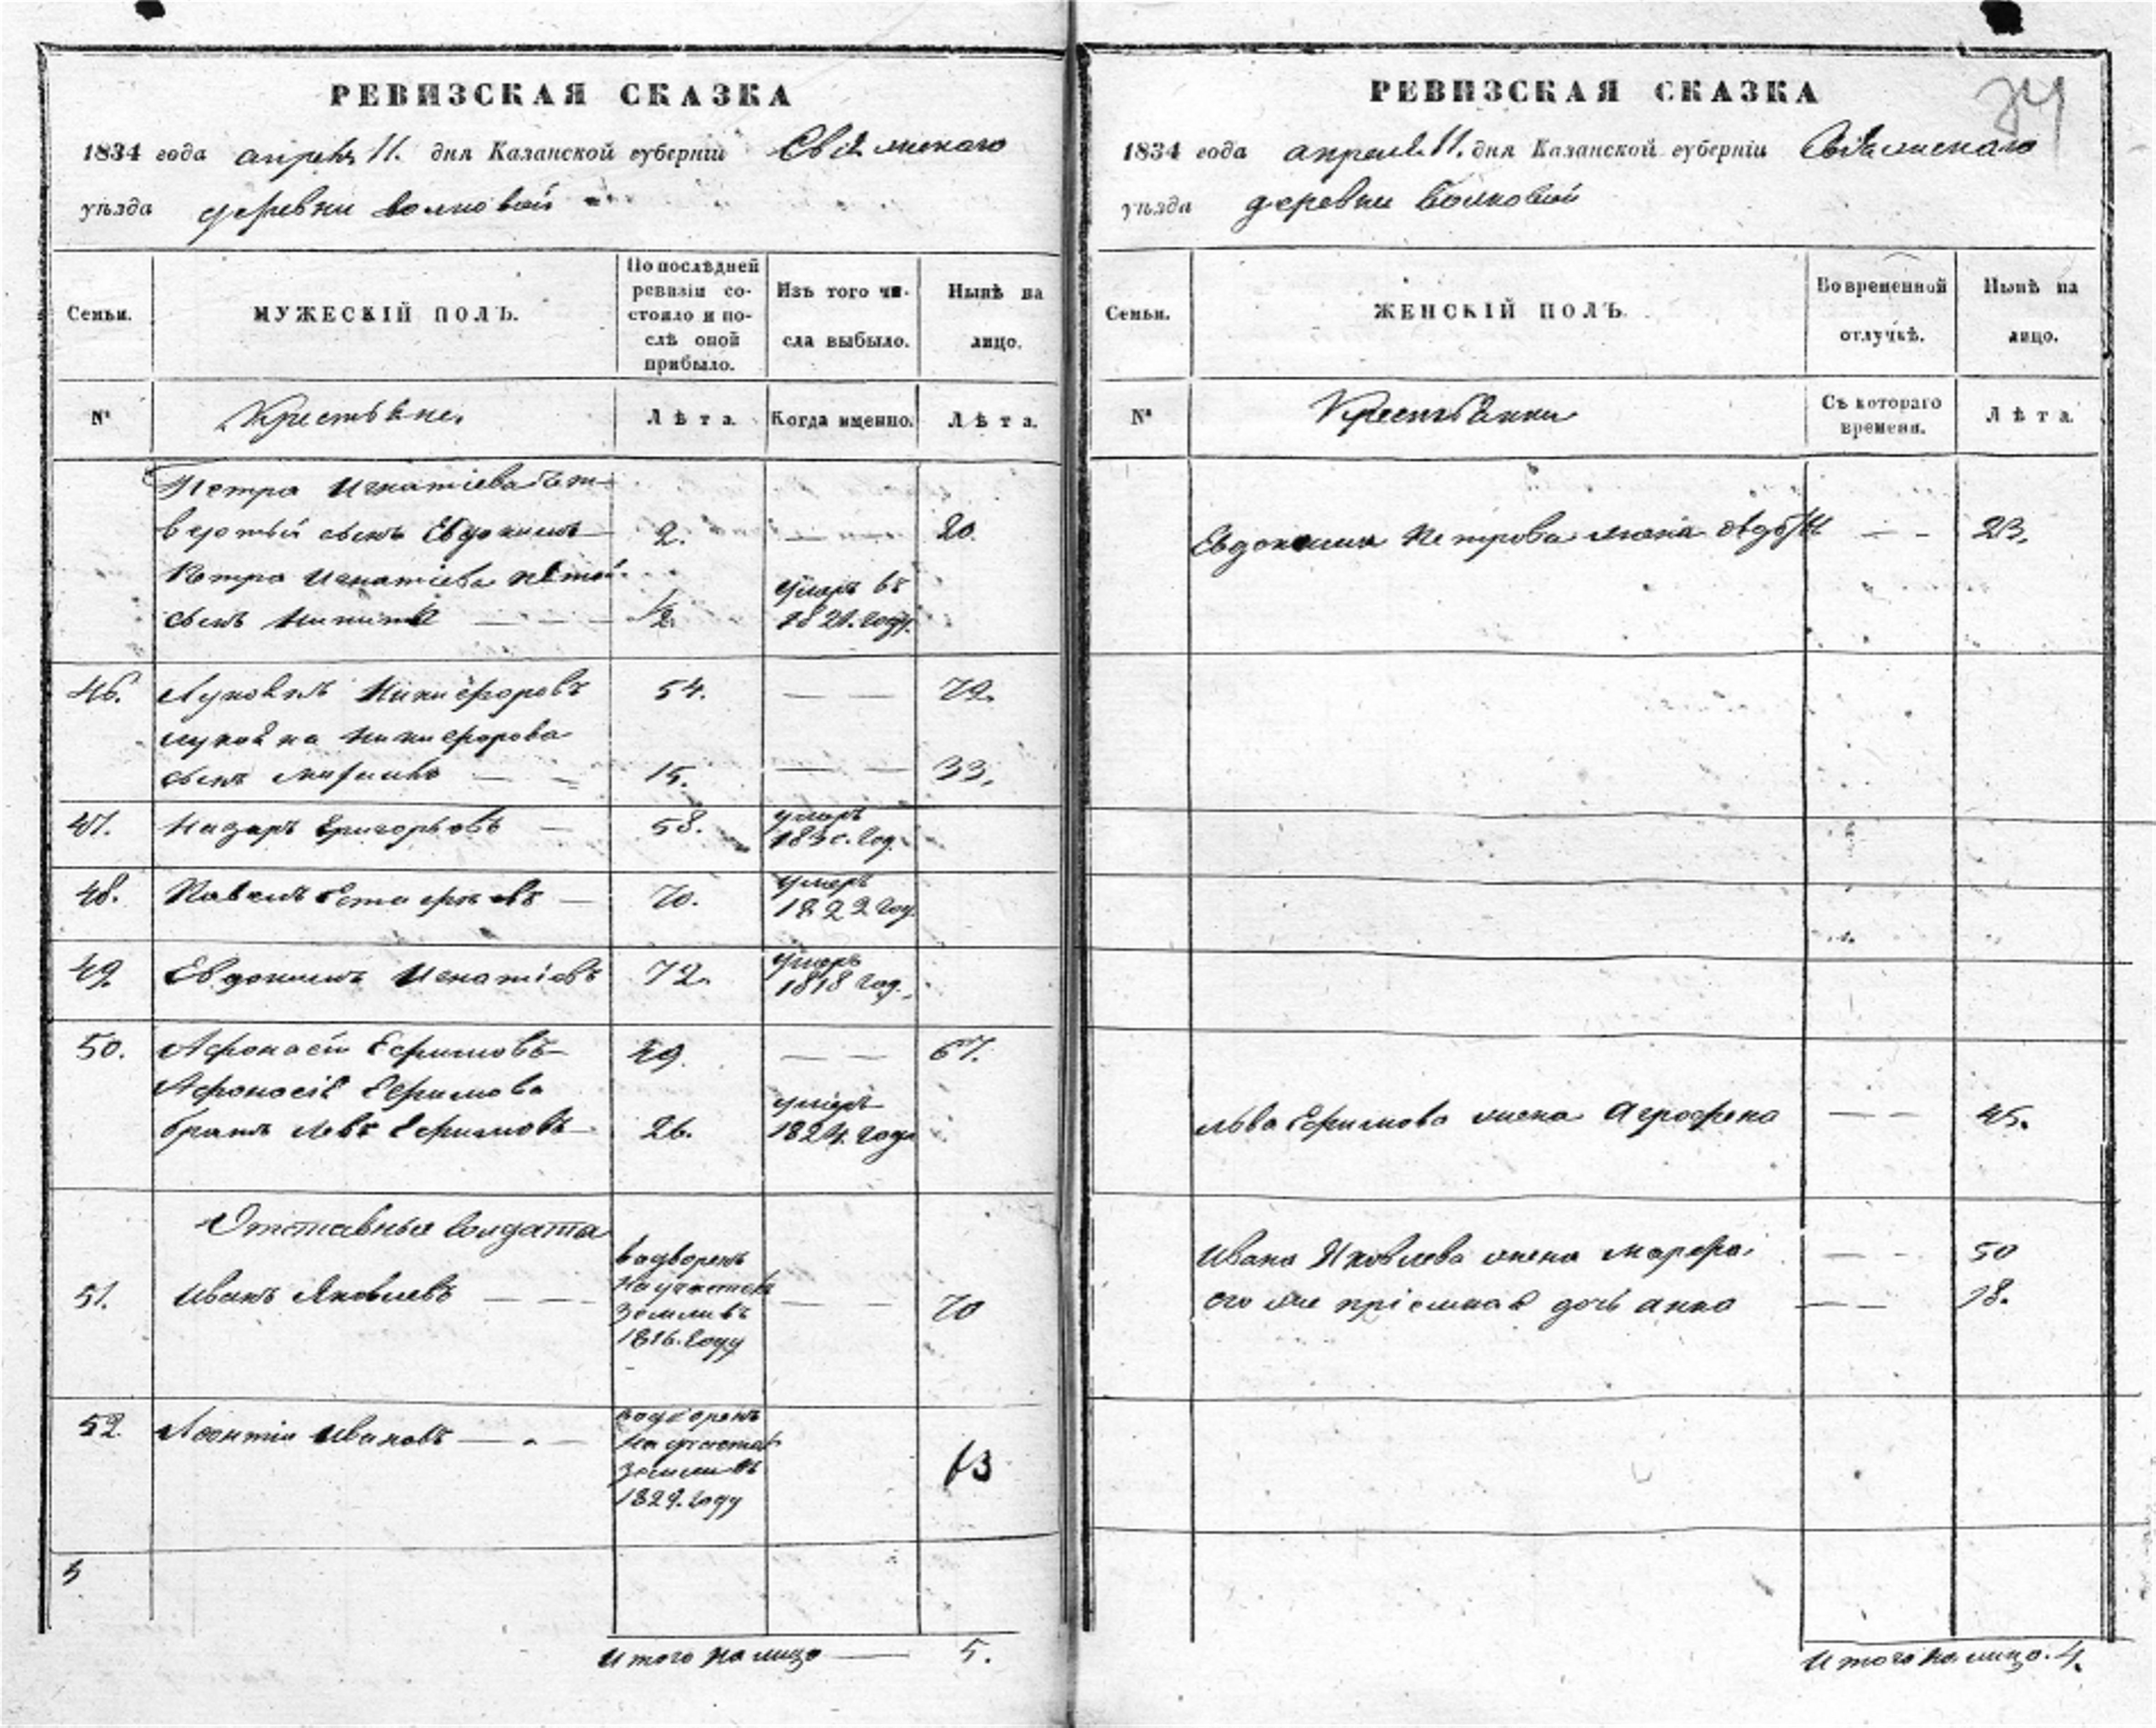 РЕВИЗСКАЯ СКАЗКА
1834 года апреля 11. дня Казанской губерніи
уѣзда деревни Волковой
Семьи.
МУЖЕСКІЙ ПОЛЪ.
По послѣдней
ревизіи со-
стояло и по-
слѣ оной
прибыло.
Изъ того чи-
сла выбыло.
Нынѣ на
лицо.
№
Крестьяне.
Лѣта.
Когда именно.
Лѣта.
Петра Игнатіева чет-
вертый сынъ Евдокимъ 2. — — 20.
Петра Игнатіева пятой
сынъ Никита — — умеръ въ 1821. году.
46. Никифоровъ 54. — — 72.
Никифорова
сынъ — — 15. — — 33.
47. Назаръ Григорьевъ — 58. умеръ год.
48. Павелъ — 70. умеръ 1822 год.
49. Евдокимъ Игнатіевъ 72. умеръ 1818 год.
50. Афонасій Ефимовъ — 49. — — 67.
Афонасія Ефимова
братъ Левъ Ефимовъ — 26. умеръ 1824. года
Отставные Солдаты
51. Иванъ Яковлевъ — — водворенъ на участокъ земли въ 1816. году — — 70
52. Леонтій Ивановъ — — водворенъ на участокъ земли въ 1829. году 63
5
Итого на лицо — 5.
РЕВИЗСКАЯ СКАЗКА
1834 года апреля 11. дня Казанской губерніи
уѣзда деревни Волковой
Семьи.
ЖЕНСКІЙ ПОЛЪ.
Во временной
отлучкѣ.
Нынѣ на
лицо.
№
Крестьянки
Съ котораго
времени.
Лѣта.
Евдокима Петрова жена — — 23.
Льва Ефимова жена Агрофена — — 45.
Ивана Яковлева жена Марфа. — — 50
его же пріемная дочь Анна — — 18.
Итого на лицо. 4.